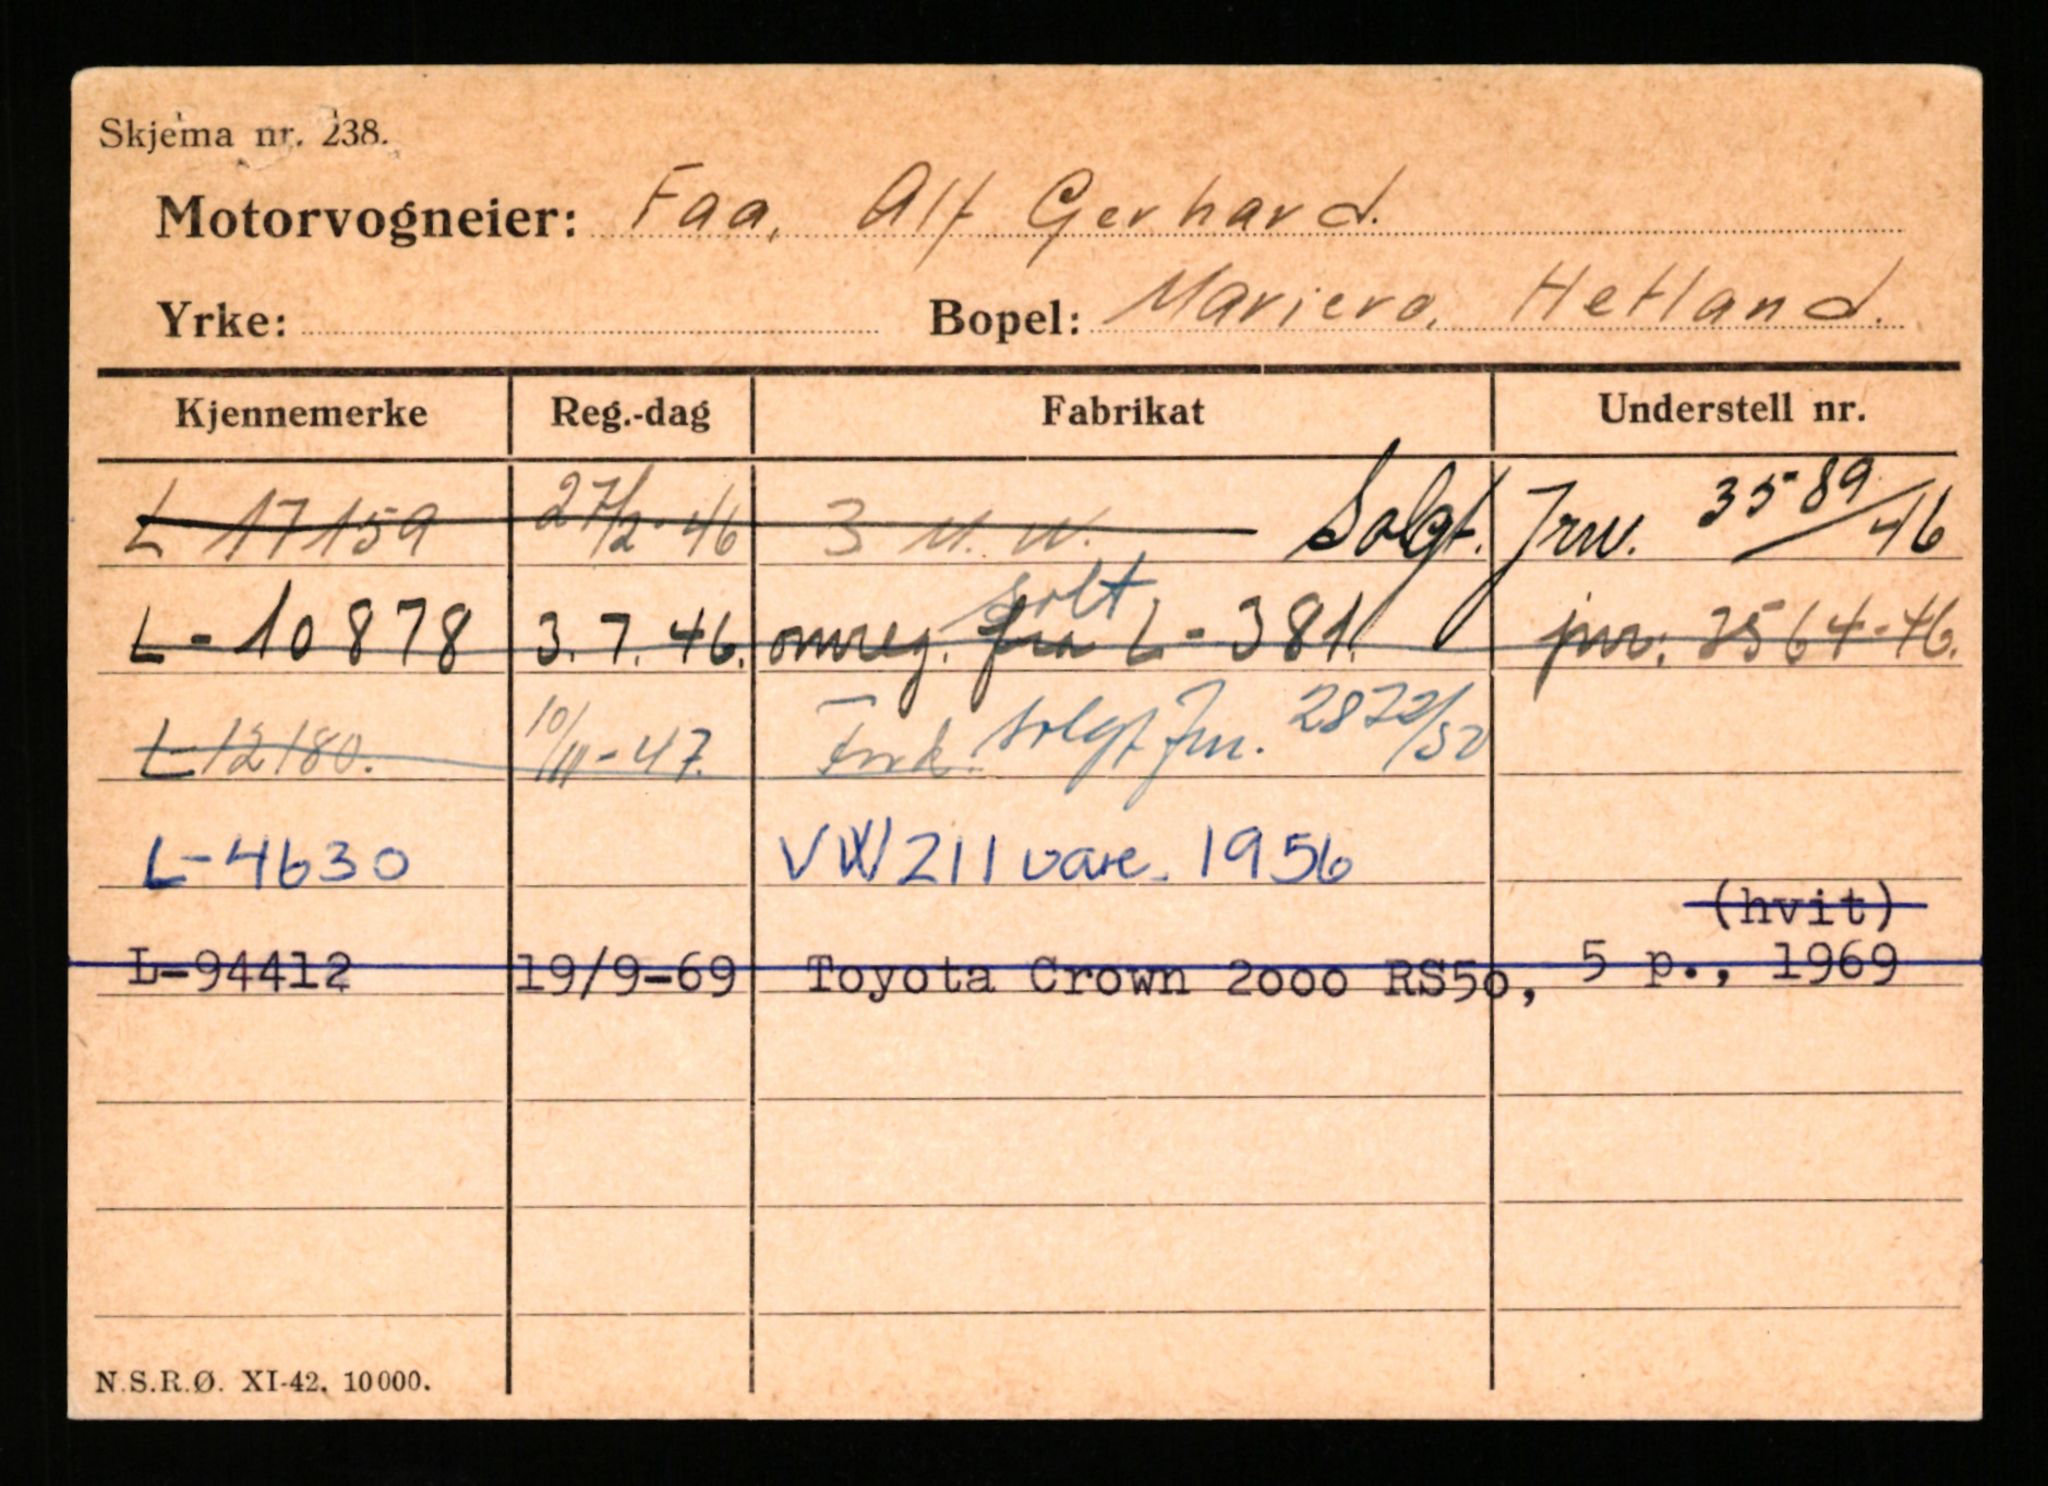 Skjema nr. 238.
Motorvogneier: Faa, Alf Gerhard.
Yrke: Bopel: Mariero, Hetland.
Kjennemerke Reg.-dag Fabrikat Understell nr.
L 17159 27/2-46 Solgt. Jnr. 3589/46
solt
L-10878 3.7.46. omreg. fra L-381. jnr: 3564-46.
L-12180. 10/III-47. Ford. solgt Jnr. 2872/50
L-4630 VW 211 vare. 1956
(hvit)
L-94412 19/9-69 Toyota Crown 2000 RS50, 5 p., 1969
N.S.R.Ø. XI-42. 10000.